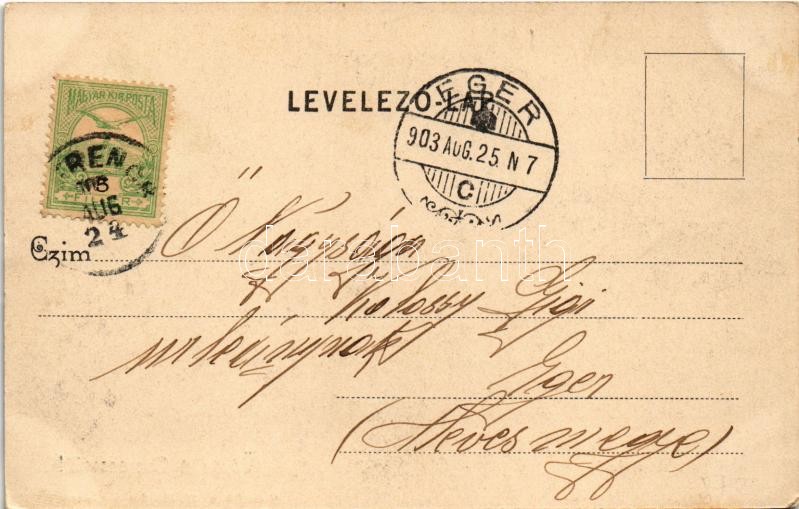 MAGYAR KIR. POSTA
LEVELEZŐ-LAP
EGER
903 AUG. 25. N 7
C
AUG
24
Czim
Ő Nagysága
Kolossy Gizi
urleánynak
Eger
(Heves megye)
darabanth